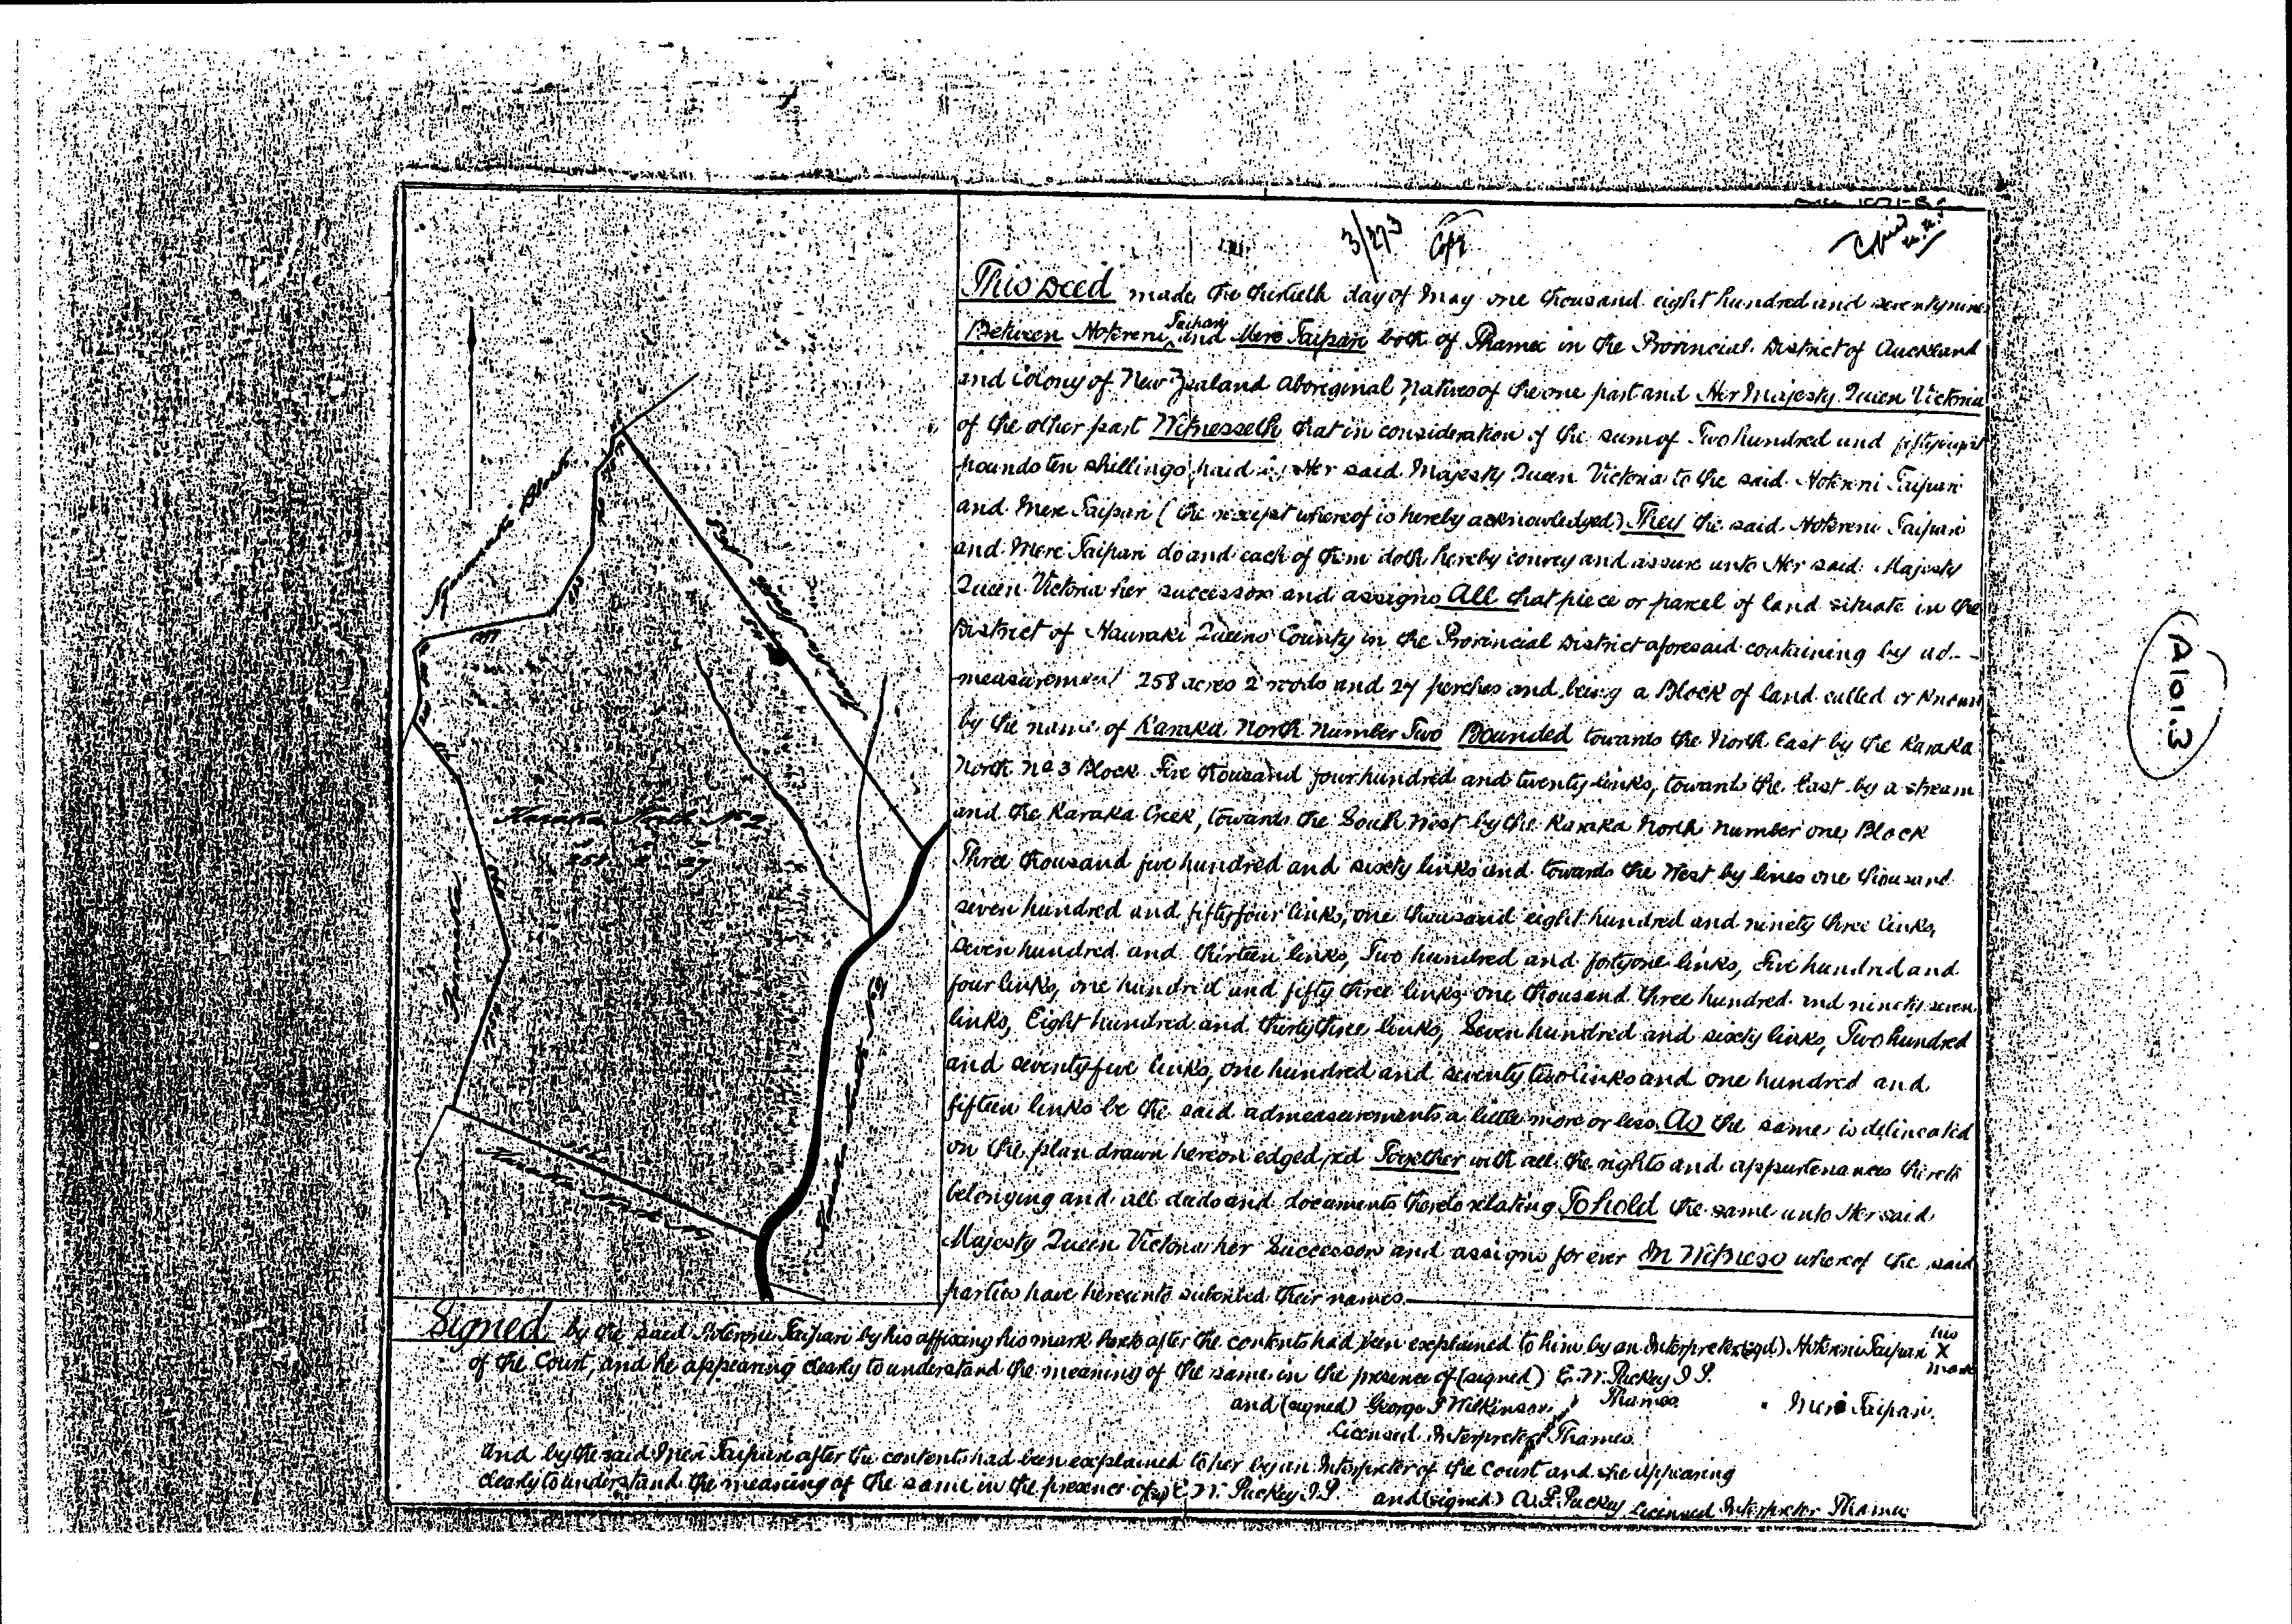 3/273 Copy
This Deed made the thirtieth day of May one thousand eight hundred and seventynine
Between Hotereni Taipari and Mere Taipari both of Thames in the Provincial District of Auckland
and Colony of New Zealand Aboriginal Natives of the one part and Her Majesty Queen Victoria
of the other part Witnesseth that in consideration of the sum of Two hundred and fiftyeight
pounds ten shillings paid by Her said Majesty Queen Victoria to the said Hotereni Taipari
and Mere Taipari (the receipt whereof is hereby acknowledged) They the said Hotereni Taipari
and Mere Taipari do and each of them doth hereby convey and assure unto Her said Majesty
Queen Victoria her successors and assigns All that piece or parcel of land situate in the
District of Hauraki Queens County in the Provincial District aforesaid containing by ad-
measurement 258 acres 2 roods and 27 perches and being a Block of land called or known
by the name of Karaka North Number Two Bounded towards the North East by the Karaka
North No 3 Block Five thousand four hundred and twenty links, towards the East by a stream
and the Karaka Creek, towards the South West by the Karaka North number one Block
Three thousand five hundred and sixty links and towards the West by lines one thousand
seven hundred and fiftyfour links, one thousand eight hundred and ninety three links,
seven hundred and thirteen links, Two hundred and fortyone links, Five hundred and
four links, one hundred and fifty three links one thousand three hundred and ninety seven
links, Eight hundred and thirtythree links, Seven hundred and sixty links, Two hundred
and seventyfive links, one hundred and seventy two links and one hundred and
fifteen links be the said admeasurements a little more or less As the same is delineated
on the plan drawn hereon edged red Together with all the rights and appurtenances thereto
belonging and all deeds and documents thereto relating To hold the same unto Her said
Majesty Queen Victoria her Successors and assigns for ever In Witness whereof the said
parties have hereunto subscribed their names
Signed by the said Hotereni Taipari by his affixing his mark hereto after the contents had been explained to him by an Interpreter (sgd) Hotereni Taipari his X mark
of the Court, and he appearing clearly to understand the meaning of the same in the presence of (signed) E. W. Puckey J.P.
Thames
and (signed) George T Wilkinson
Mere Taipari
Licensed Interpreter Thames
and by the said Mere Taipari after the contents had been explained to her by an Interpreter of the Court and she appearing
clearly to understand the meaning of the same in the presence of (sgd) E. W. Puckey J.P. and (signed) A. F. Puckey Licensed Interpreter Thames
Karaka North No 2
258 2 27
A101.3